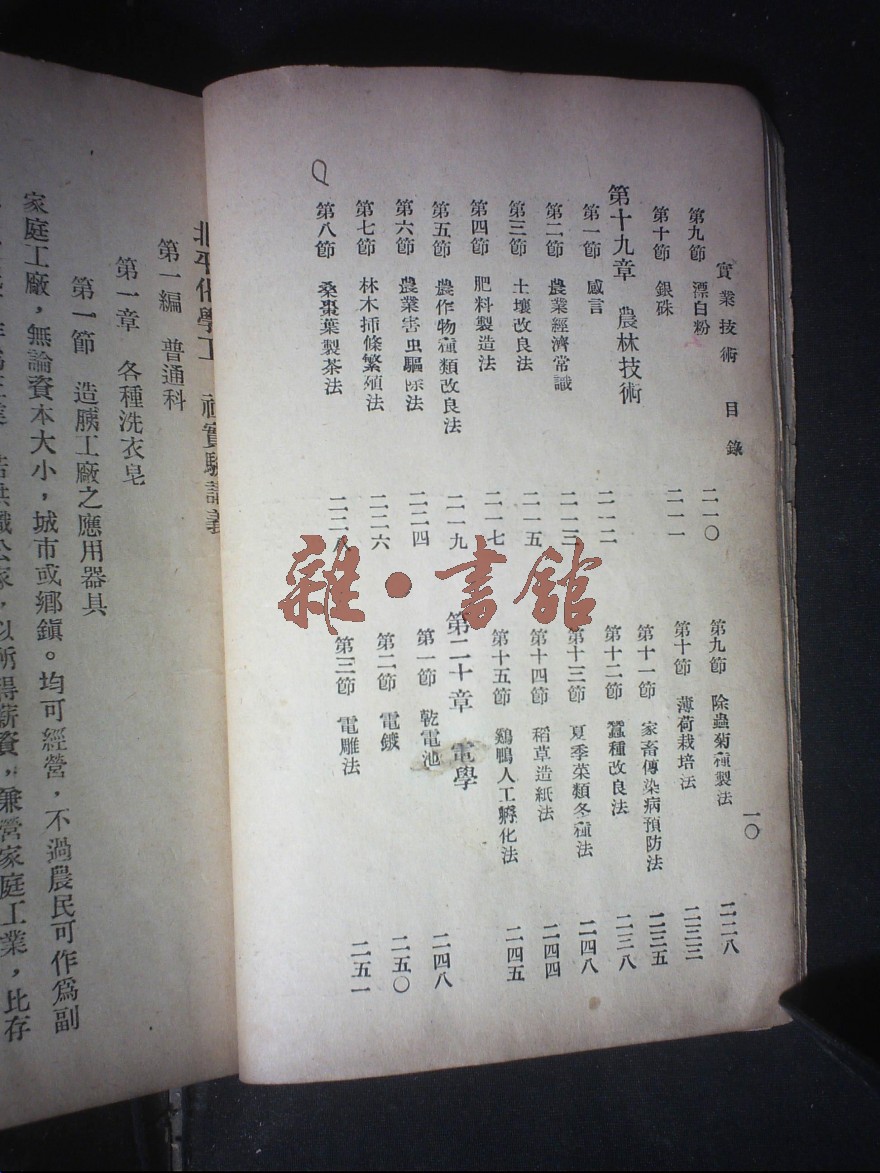 實業技術 目錄
一〇
第九節 漂白粉 二一〇
第十節 銀硃 二一一
第十九章 農林技術
第一節 感言 二一二
第二節 農業經濟常識 二一三
第三節 土壤改良法 二一五
第四節 肥料製造法 二一七
第五節 農作物種類改良法 二一九
第六節 農業害虫驅除法 二二四
第七節 林木揷條繁殖法 二二六
第八節 桑棗葉製茶法 二二八
第九節 除蟲菊種製法 二二八
第十節 薄荷栽培法 二三三
第十一節 家畜傳染病預防法 二三五
第十二節 蠶種改良法 二三八
第十三節 夏季菜類冬種法 二四八
第十四節 稻草造紙法 二四四
第十五節 鷄鴨人工孵化法 二四五
第二十章 電學
第一節 乾電池 二四八
第二節 電鍍 二五〇
第三節 電雕法 二五一
雜·書館
北平化學工 社實驗講義
第一編 普通科
第一章 各種洗衣皂
第一節 造胰工廠之應用器具
家庭工廠，無論資本大小，城市或鄉鎮。均可經營，不過農民可作爲副
以所得薪資，兼營家庭工業，比存